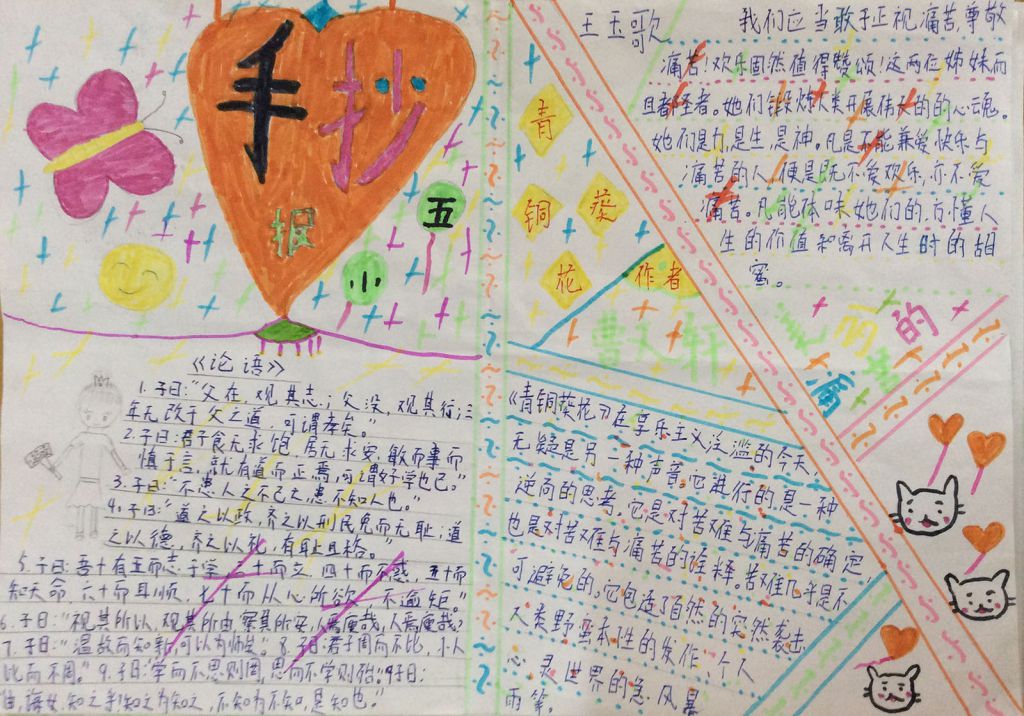 手抄
报
五
小
《论语》
1.子曰:“父在,观其志;父没,观其行;三
年无改于父之道,可谓孝矣。”
2.子曰:君子食无求饱,居无求安,敏而事而
慎于言,就有道而正焉,可谓好学也已。”
3.子曰:“不患人之不己之,患不知人也。”
4.子曰:“道之以政,齐之以刑民免而无耻;道
之以德,齐之以礼,有耻且格。”
5.子曰:吾十有五而志于学,三十而立,四十而不惑,五十而
知天命,六十而耳顺,七十而从心所欲,不逾矩。”
6.子曰:“视其所以,观其所由,察其所安,人焉廋哉?人焉廋哉?
7.子曰:“温故而知新,可以为师矣。”8.子曰:君子周而不比,小人
比而不周。”9.子曰:学而不思则罔,思而不学则殆。”9子曰:
由,诲女,知之乎!知之为知之,不知为不知,是知也。”
青
铜
葵
花
作者
曹文轩
王玉歌
我们应当敢于正视痛苦,尊敬
痛苦!欢乐固然值得赞颂!这两位姊妹而
且都圣者。她们锻炼人类开展伟大的的心魂。
她们是力,是生,是神。凡是不能兼爱快乐与
痛苦的人,便是既不爱欢乐,亦不爱
痛苦。凡能体味她们的,方懂人
生的价值和离开人生时的甜
蜜。
美丽的
痛苦
《青铜葵花》在享乐主义泛滥的今天,
无疑是另一种声音。它进行的是一种
逆向的思考,它是对苦难与痛苦的确定,
也是对苦难与痛苦的诠释。苦难几乎是不
可避免的,它包含了自然的突然袭击
人类野蛮本性的发作,个人
心灵世界的急风暴
雨等。